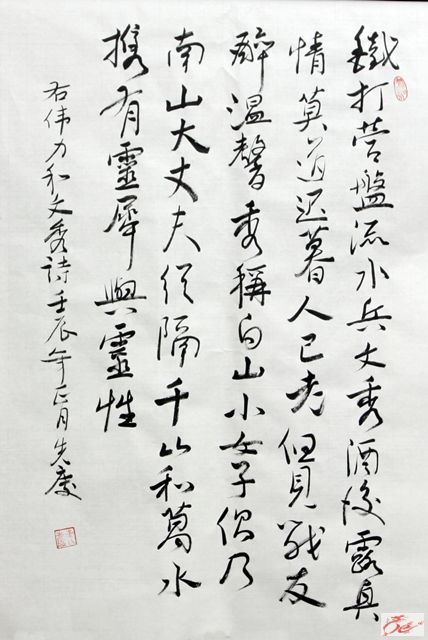 鐵打营盤流水兵文秀酒後露真
情莫道迟暮人已老但見戰友
醉温馨秀稱白山小女子伱乃
南山大丈夫從隔千山和萬水
携有靈犀與靈性
右伟力和文秀詩壬辰年正月先慶